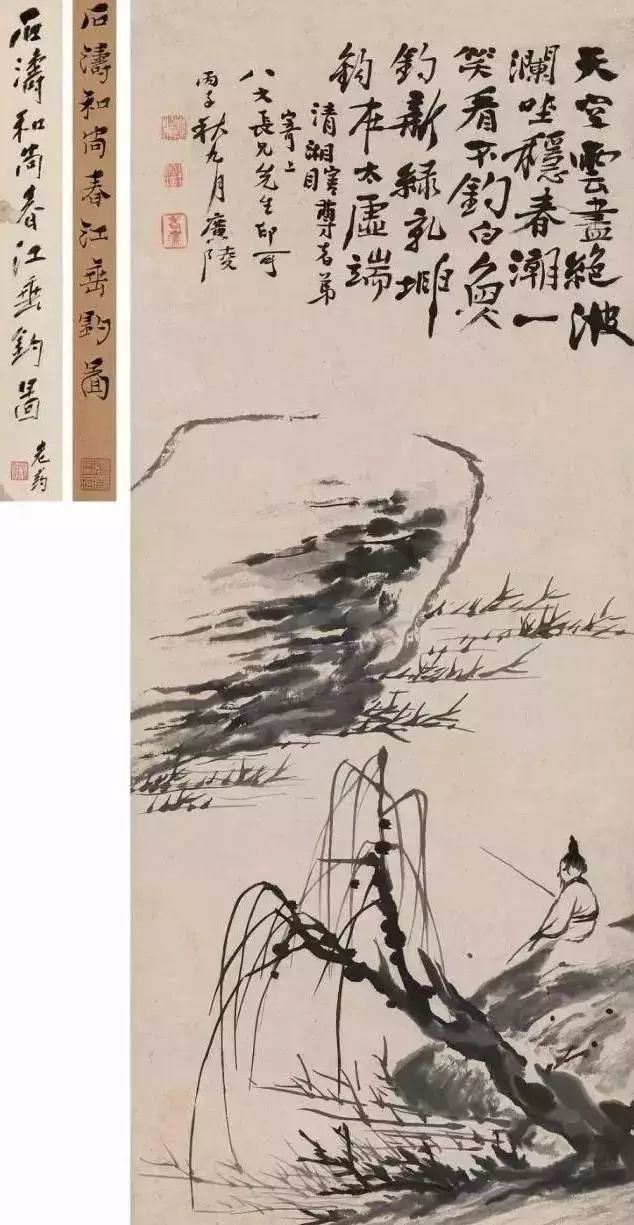 天空雲盡絕波
瀾坐穩春潮一
笑看不釣白魚
釣新綠乾坤
釣在太虛端
清湘瞎尊者弟
寄上
八大長兄先生印可
丙子秋九月廣陵
石濤和尚春江垂釣圖
石濤和尚春江垂釣圖
老药